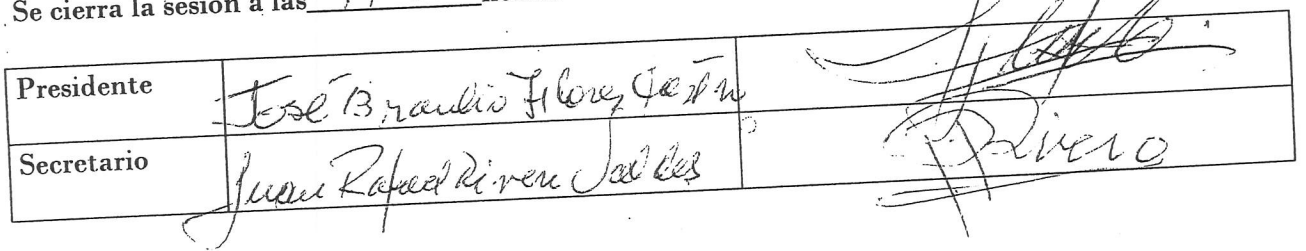 Se cierra la sesión a las
Presidente José Braulio Flores
Secretario Juan Rafael Rivero Valdes Rivero